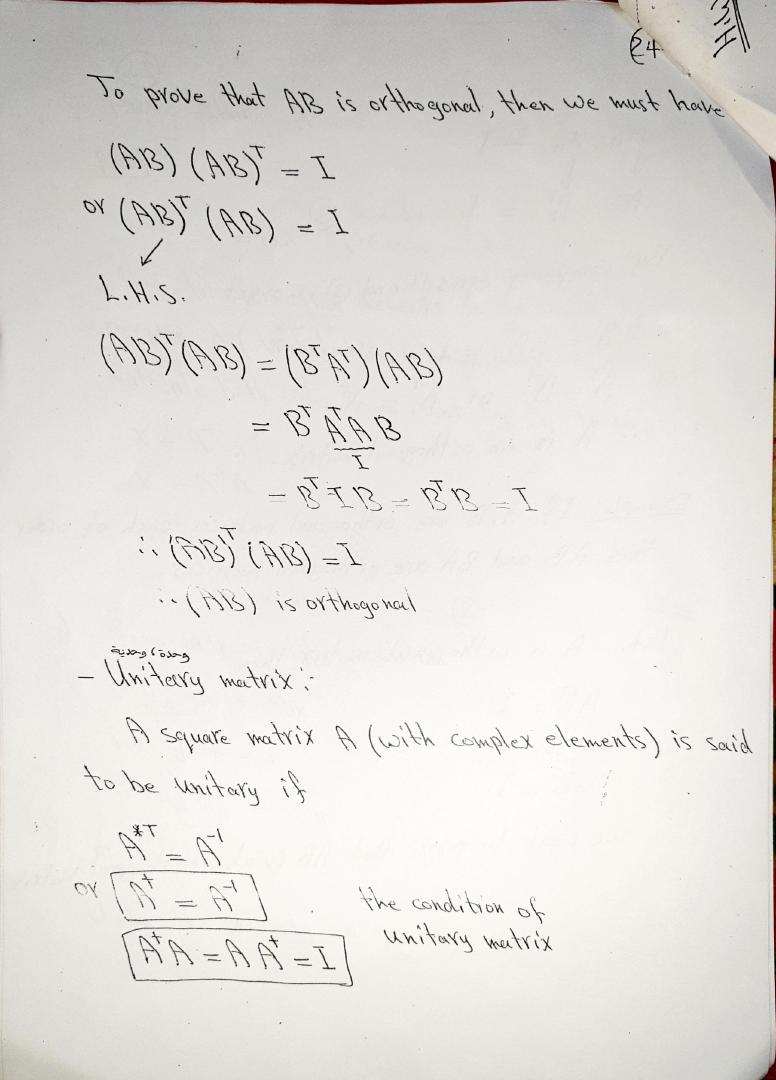 24
To prove that AB is orthogonal, then we must have
(AB) (AB)ᵀ = I
or (AB)ᵀ (AB) = I
L.H.S.
(AB)ᵀ(AB) = (BᵀAᵀ)(AB)
= Bᵀ AᵀA B
I
= Bᵀ I B = BᵀB = I
∴ (AB)ᵀ (AB) = I
∴ (AB) is orthogonal
- Unitary matrix :-
A square matrix A (with complex elements) is said
to be unitary if
A*ᵀ = A⁻¹
or A† = A⁻¹
the condition of
unitary matrix
A†A = A A† = I